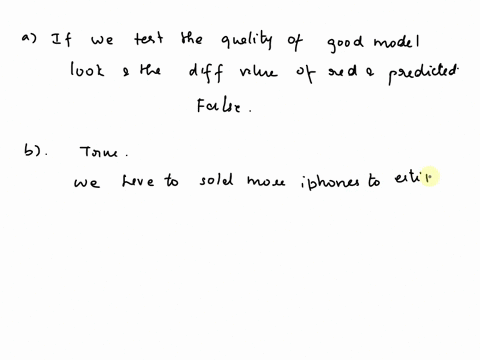 a) If we test the quality of good model
look & the diff value of red & predicted.
False.
b). True.
we have to sold more iphones to esti